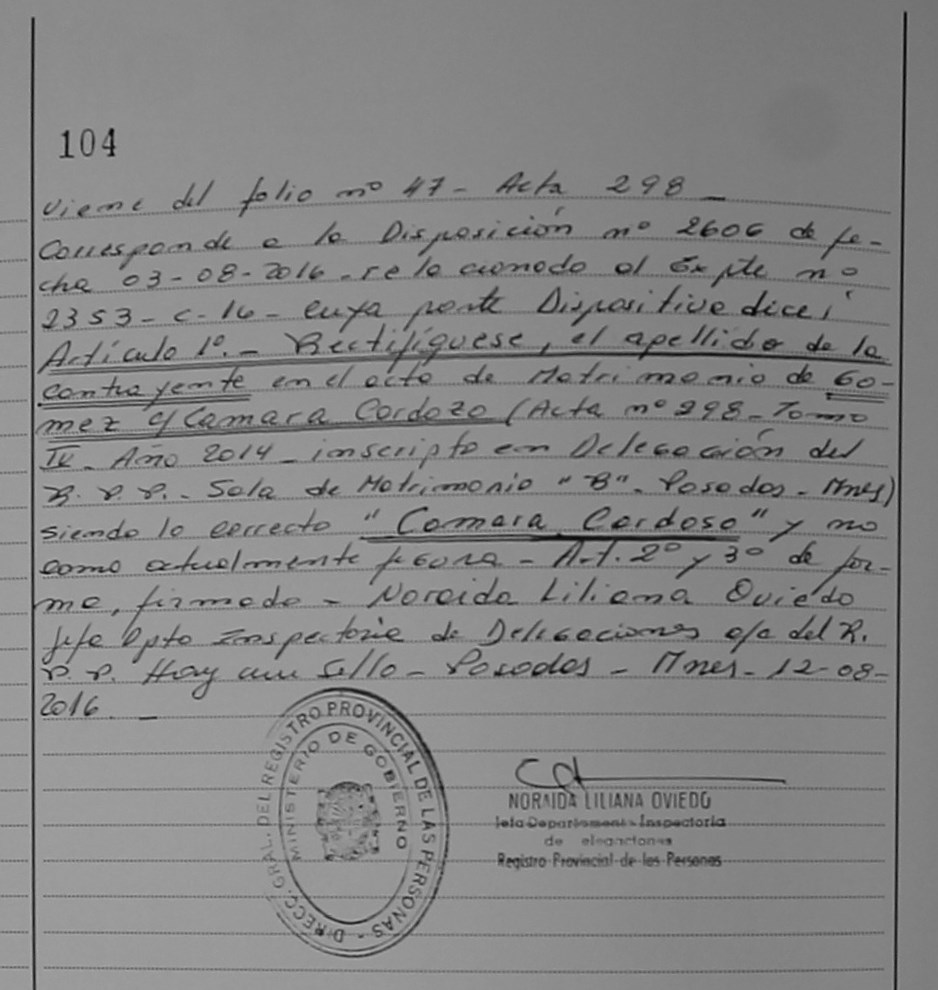 104
viene del folio nº 47 - Acta 298 _
Corresponde a la Disposición nº 2606 de fe-
cha 03-08-2016 - relacionado al Expte nº
2353-C-16 - cuya parte Dispositiva dice:
Artículo 1º.- Rectifíquese, el apellido de la
contrayente en el acta de Matrimonio de Go-
mez y Camara Cardozo (Acta nº 298 - Tomo
IV - Año 2014 - inscripto en Delegación del
R. P. P. - Sala de Matrimonio "B" - Posadas - Mnes)
siendo lo correcto "Camara Cardoso" y no
como actualmente figura - Art. 2º y 3º de for-
ma, firmado - Noraida Liliana Oviedo
Jefe Dpto Inspectoria de Delegaciones a/c del R.
P. P. Hay un Sello - Posadas - Mnes - 12-08-
2016. _
DIRECC. GRAL. DEL REGISTRO PROVINCIAL DE LAS PERSONAS -
MINISTERIO DE GOBIERNO
NORAIDA LILIANA OVIEDO
Jefa Departamento Inspectoria
de elegaciones
Registro Provincial de las Personas